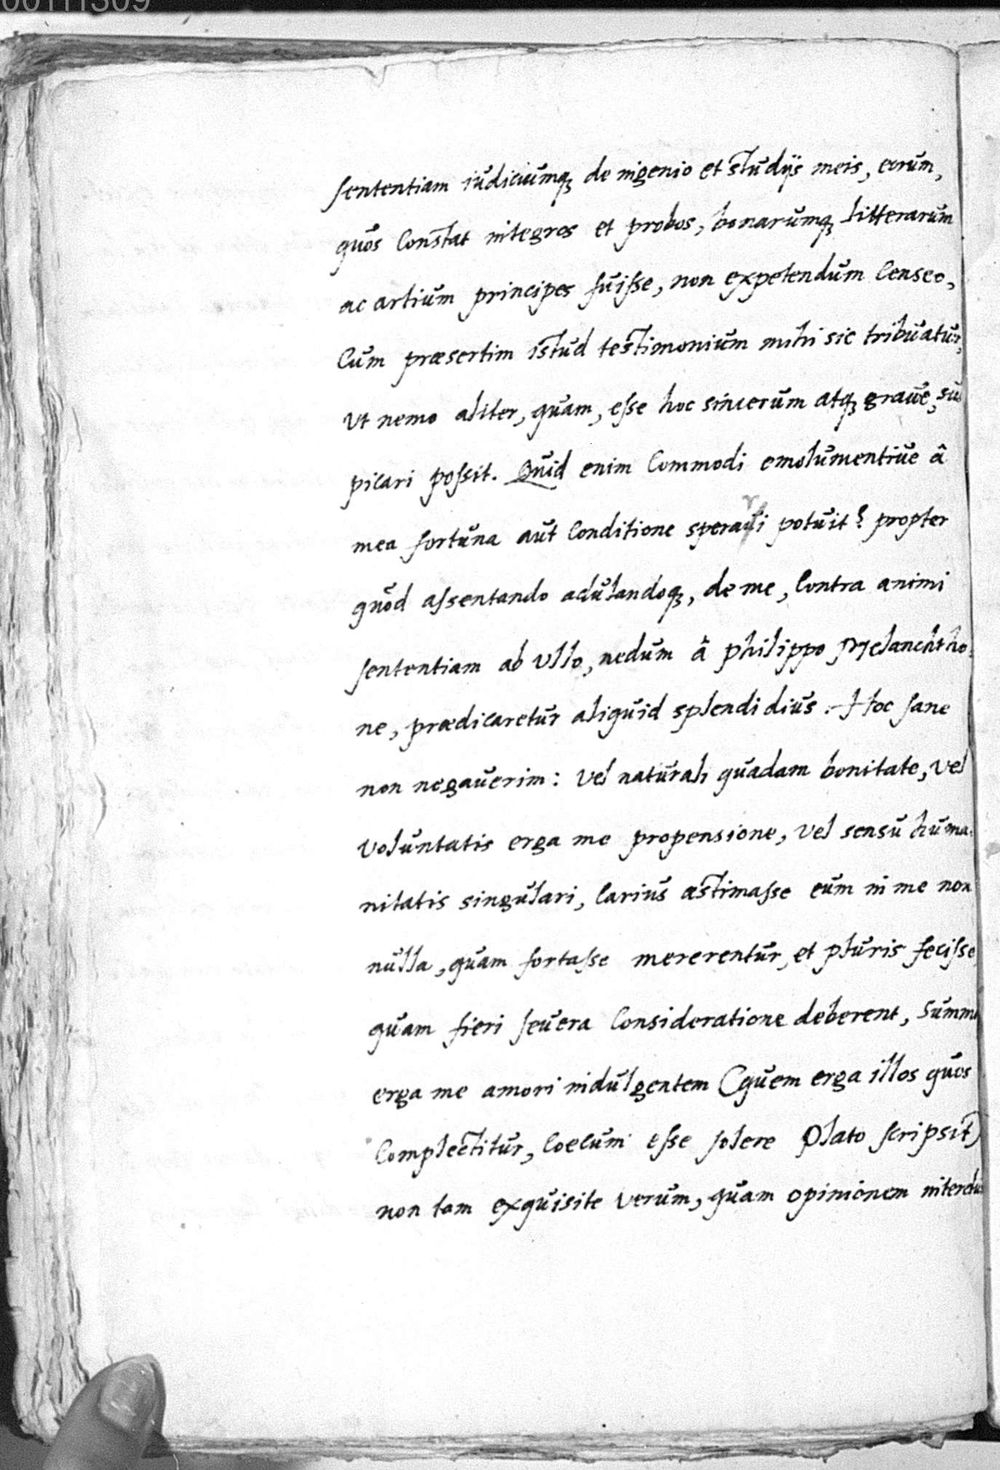 00111309
sententiam iudiciumq; de ingenio et studijs meis, eorum,
quos constat integros et probos, bonarumq; litterarum
ac artium principes fuisse, non expetendum censeo,
Cum præsertim istud testimonium mihi sic tribuatur,
ut nemo aliter, quam, esse hoc sincerum atq; graue, sus
picari possit. Quid enim commodi emolumentiue â
mea fortuna aut conditione sperari potuit? propter
quod assentando adulandoq;, de me, contra animi
sententiam ab ullo, nedum â philippo Melanchtho-
ne, prædicaretur aliquid splendidius. Hoc sane
non negauerim: vel naturali quadam bonitate, vel
voluntatis erga me propensione, vel sensu huma-
nitatis singulari, carius æstimasse eum in me non
nulla, quam fortasse mererentur, et pluris fecisse
quam fieri seuera consideratione deberent, Summo
erga me amori indulgentem (quem erga illos quos
complectitur, coecum esse solere Plato scripsit)
non tam exquisite verum, quam opinionem